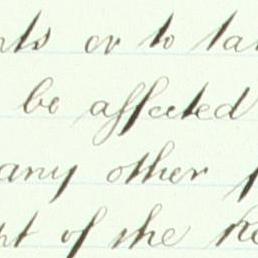 nts or to ta
be affected
any other
pt of the Re